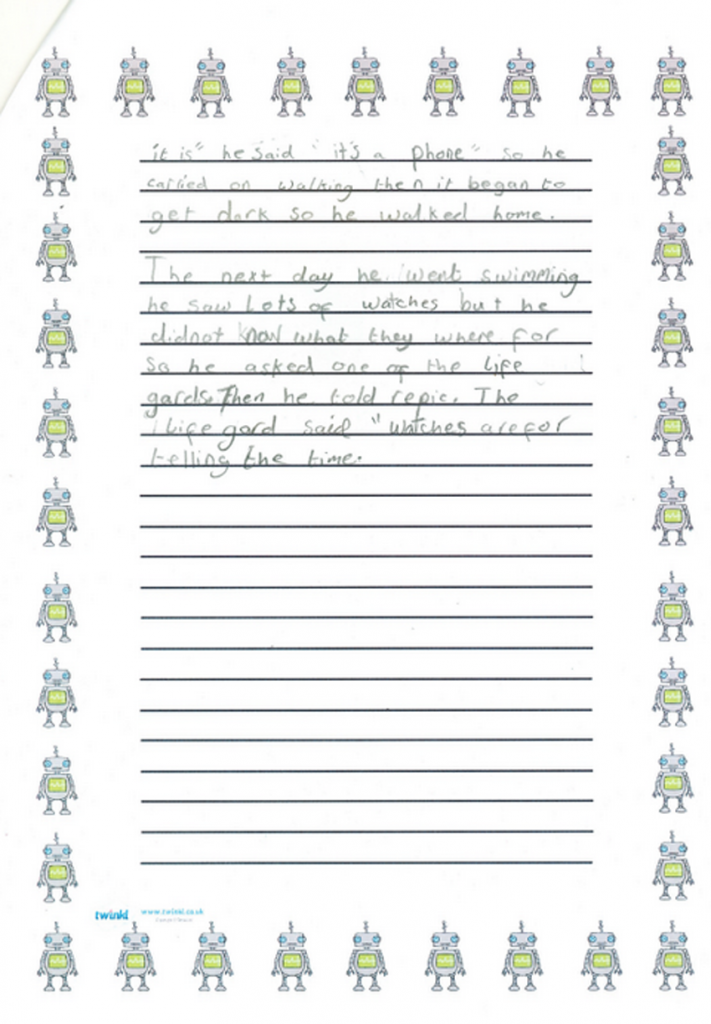 it is" he said "it's a phone" so he
carried on walking then it began to
get dark so he walked home.
The next day he went swimming
he saw lots of watches but he
didnot know what they where for
so he asked one of the life
gards. Then he told repic. The
life gard said "watches are for
telling the time.
twinkl www.twinkl.co.uk